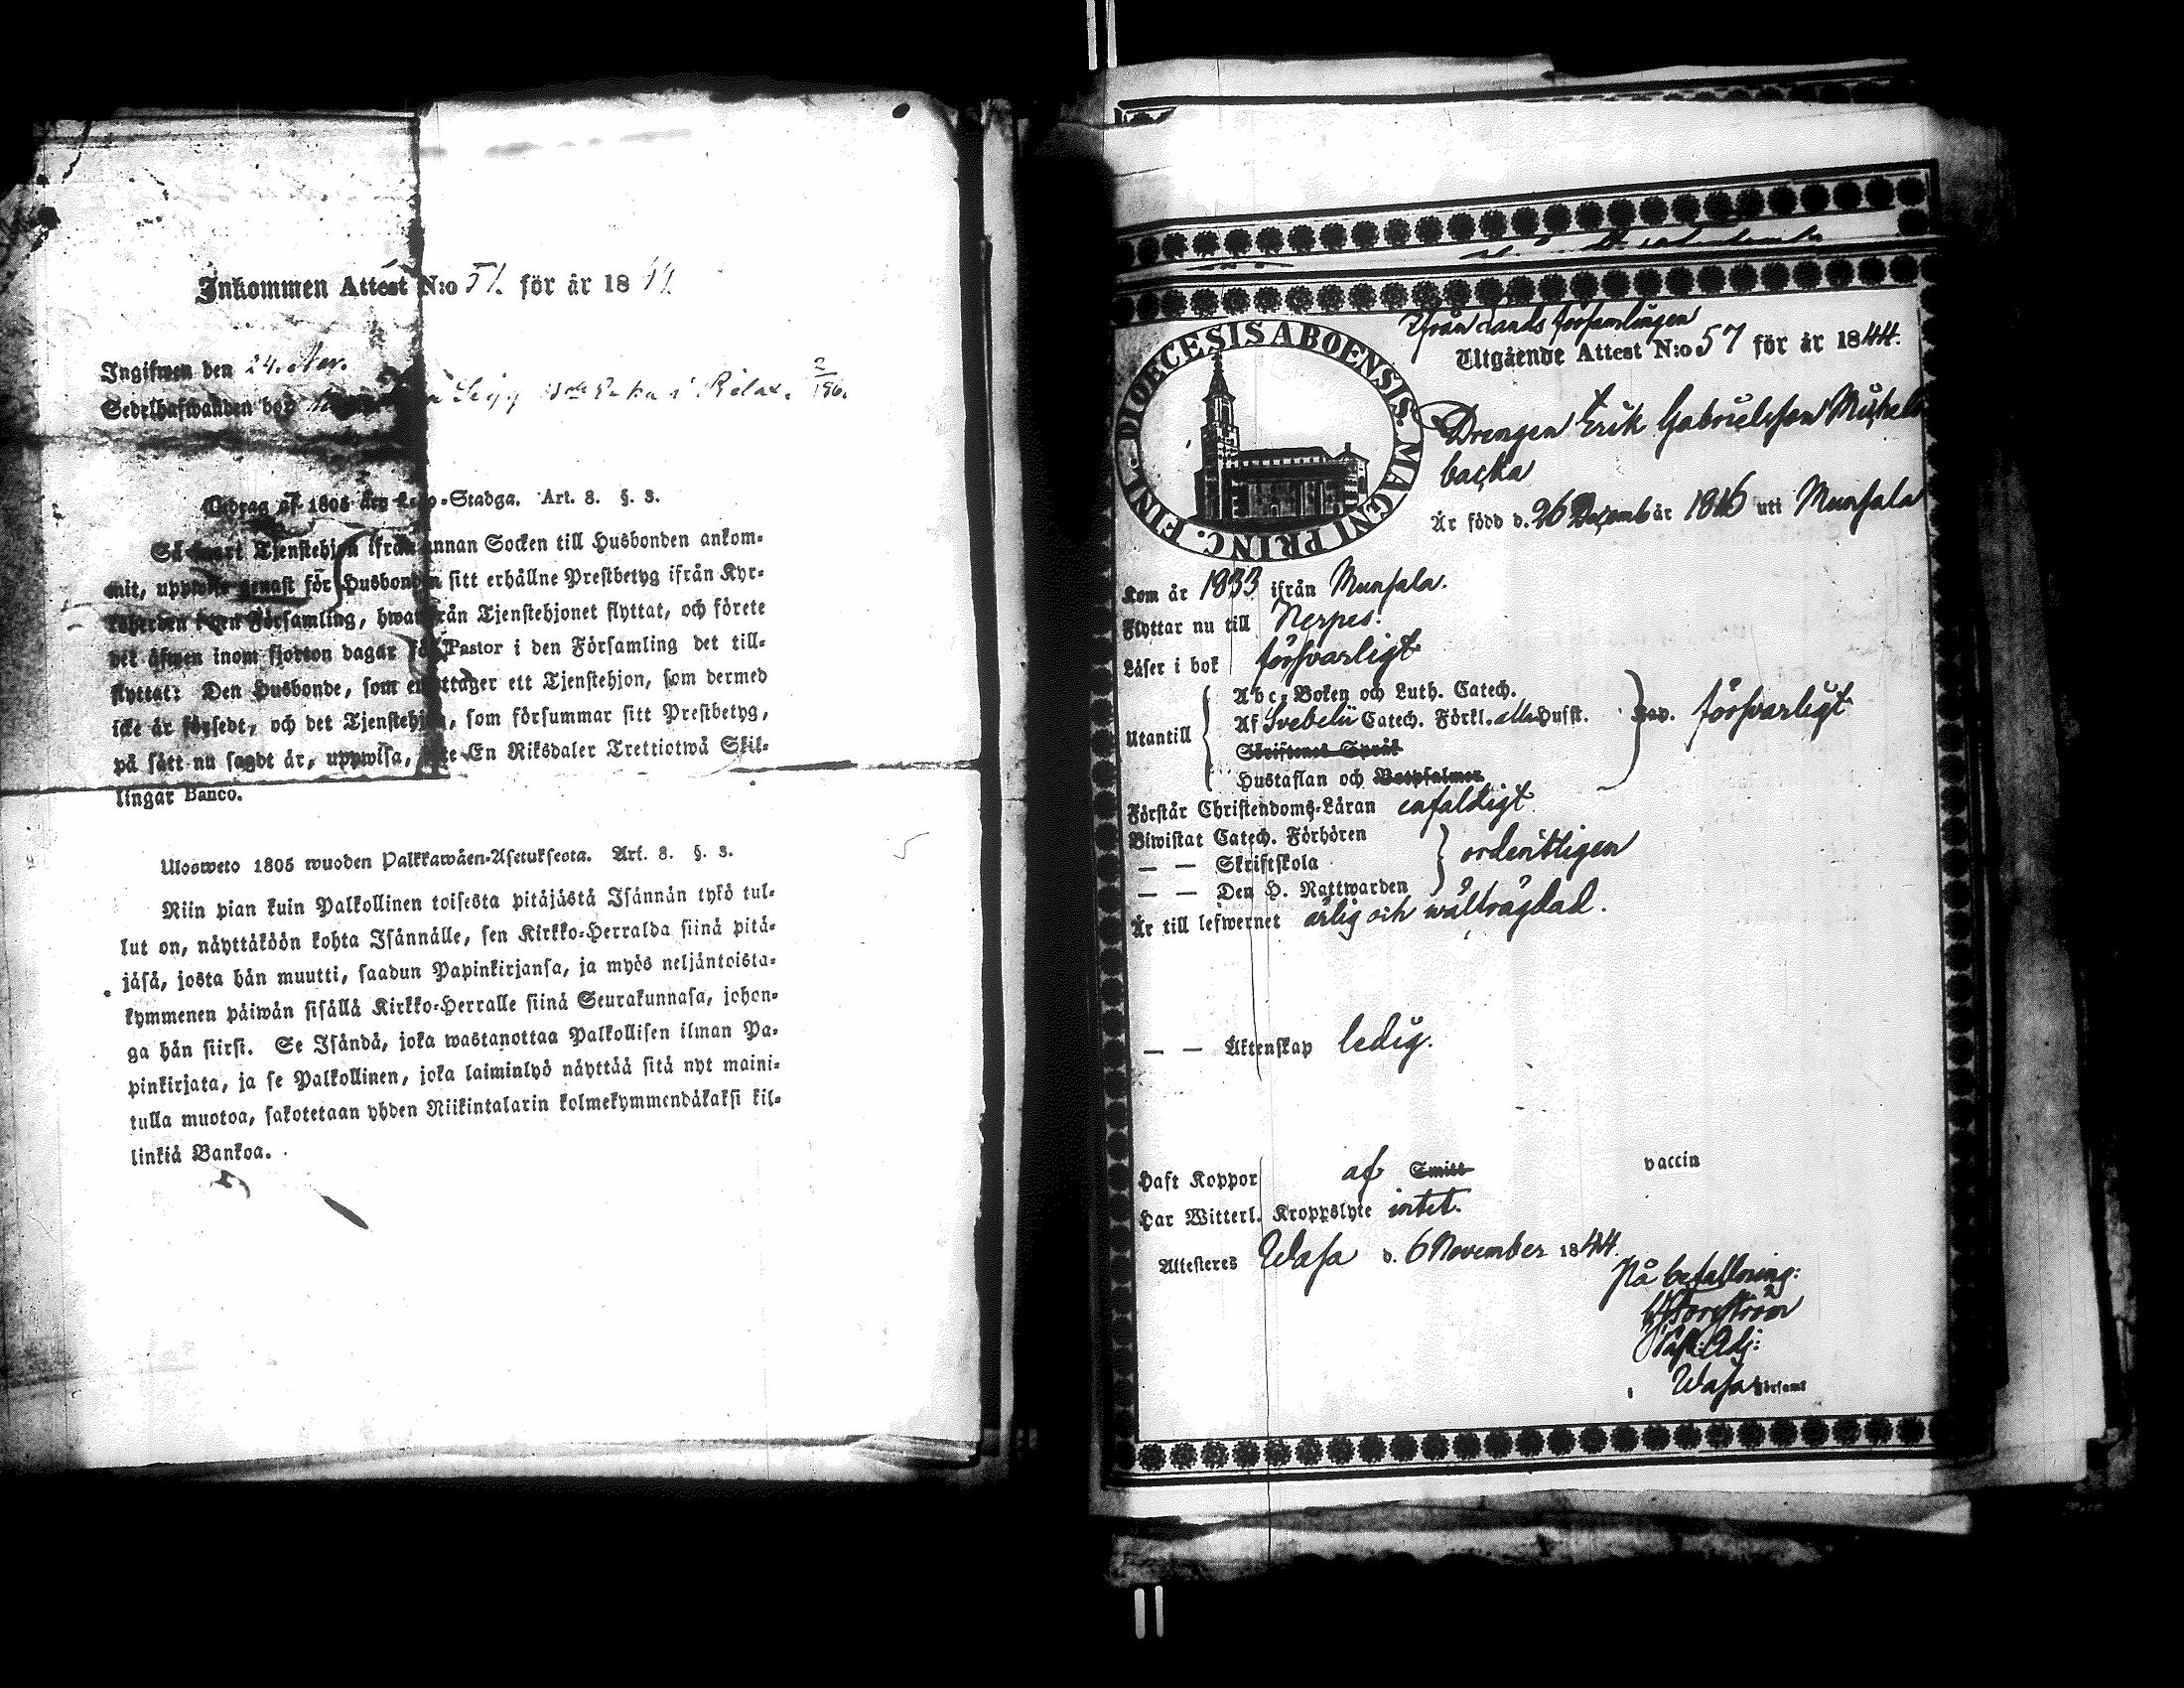 Inkommen Attest N:o 51. för år 18
Ingifwen den 24.
Sedelhafwanden bor i Relax. 2/196.
Utdrag af 1805 års Lego-Stadga. Art. 8. §. 3.
Så snart Tjenstehjon ifrån annan Socken till Husbonden ankom-
mit, uppwise genast för Husbonden sitt erhållne Prestbetyg ifrån Kyr-
koherden i den Församling, hwarifrån Tjenstehjonet flyttat, och förete
det äfwen inom fjorton dagar för Pastor i den Församling det till-
flyttat: Den Husbonde, som emottager ett Tjenstehjon, som dermed
icke är försedt, och det Tjenstehjon, som försummar sitt Prestbetyg,
på sätt nu sagdt är, uppwisa, böte En Riksdaler Trettiotwå Skil-
lingar Banco.
Ulosweto 1805 wuoden Palkkawäen-Asetuksesta. Art. 8. §. 3.
Niin pian kuin Palkollinen toisesta pitäjästä Isännän tykö tul-
lut on, näyttäköön kohta Isännälle, sen Kirkko-Herralda siinä pitä-
jäsä, josta hän muutti, saadun Papinkirjansa, ja myös neljäntoista-
kymmenen päiwän sisällä Kirkko-Herralle siinä Seurakunnasa, johon-
ga hän siirsi. Se Isändä, joka wastanottaa Palkollisen ilman Pa-
pinkirjata, ja se Palkollinen, joka laiminlyö näyttää sitä nyt maini-
tulla muotoa, sakotetaan yhden Riikintalarin kolmekymmendäkaksi kil-
linkiä Bankoa.
DIOECESIS ABOENSIS. MAGNI PRINC. FINL.
Ifrån Landsförsamlingen
Utgående Attest N:o 57 för år 1844.
Drengen Erik Gabrielsson Mickels
backa
Är född d. 26 Decemb år 1816 uti Munsala
Kom år 1833 ifrån Munsala.
Flyttar nu till Nerpes.
Läser i bok försvarligt
Utantill
Abc-Boken och Luth. Catech.
Af Svebelii Catech. Förkl. alla Hufst. försvarligt
Skriftenes Språk
Hustaflan och Botpsalmer
Förstår Christendoms-Läran enfaldigt
Biwistat Catech. Förhören
— — Skriftskola ordentligen
— — Den H. Nattwarden
Är till lefwernet ärlig och wälfrägdad.
— — Äktenskap ledig.
Haft Koppor af Smitt vaccin
Har Witterl. Kroppslyte intet.
Attesteres Wasa d. 6 November 1844.
På befallning:
Past. Adj:
Wasa Församl